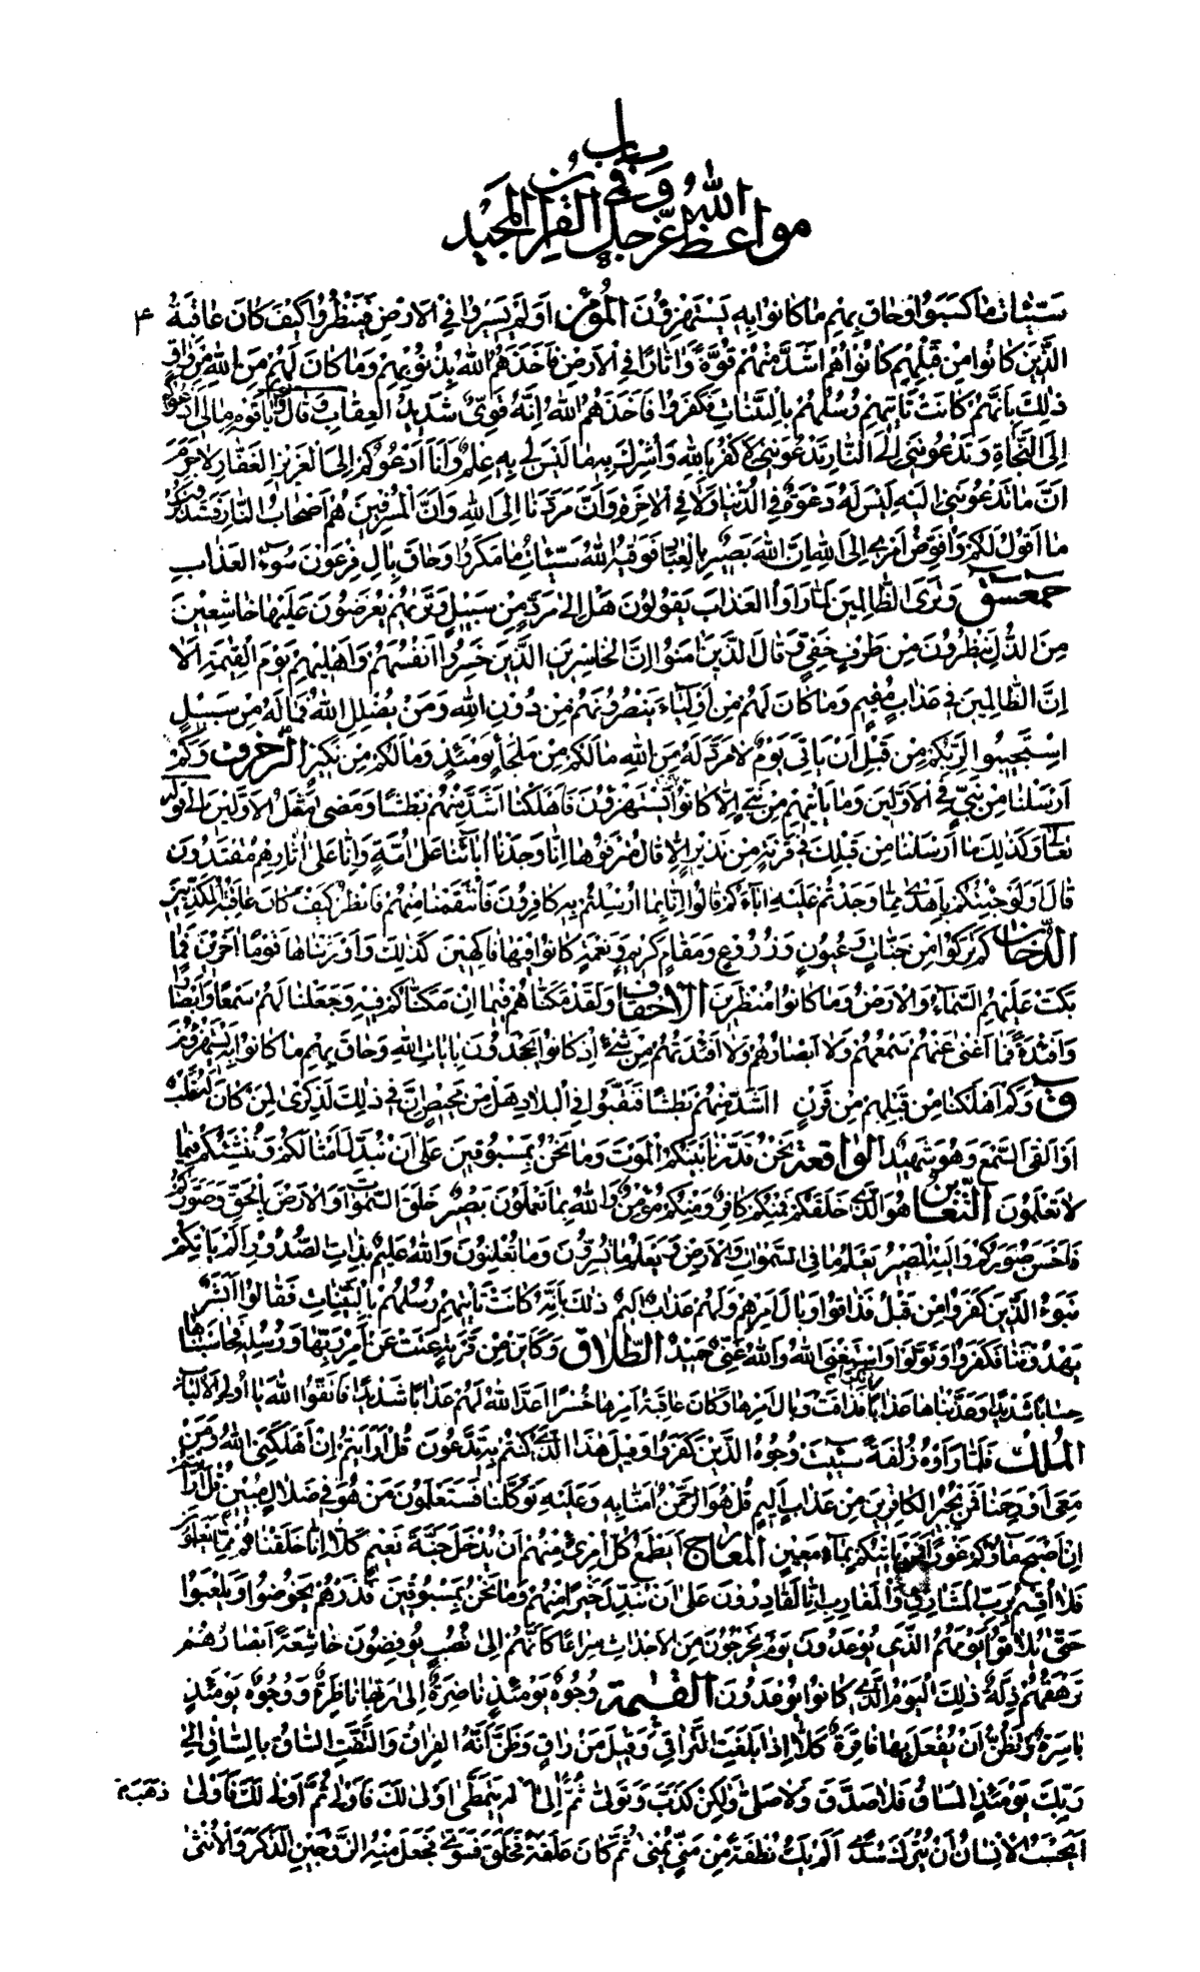 باب
مواعظ الله عز وجل في القرآن المجيد
سَيِّئاتُ ما كَسَبُوا وَحاقَ بِهِمْ ما كانُوا بِهِ يَسْتَهْزِؤُنَ المؤمن أَوَلَمْ يَسِيرُوا فِي الْأَرْضِ فَيَنْظُرُوا كَيْفَ كانَ عاقِبَةُ ۴
الَّذِينَ كانُوا مِنْ قَبْلِهِمْ كانُوا هُمْ أَشَدَّ مِنْهُمْ قُوَّةً وَآثاراً فِي الْأَرْضِ فَأَخَذَهُمُ اللهُ بِذُنُوبِهِمْ وَما كانَ لَهُمْ مِنَ اللهِ مِنْ واقٍ
ذلِكَ بِأَنَّهُمْ كانَتْ تَأْتِيهِمْ رُسُلُهُمْ بِالْبَيِّناتِ فَكَفَرُوا فَأَخَذَهُمُ اللهُ إِنَّهُ قَوِيٌّ شَدِيدُ الْعِقابِ وَقالَ تعالى وَيا قَوْمِ ما لِي أَدْعُوكُمْ
إِلَى النَّجاةِ وَتَدْعُونَنِي إِلَى النَّارِ تَدْعُونَنِي لِأَكْفُرَ بِاللهِ وَأُشْرِكَ بِهِ ما لَيْسَ لِي بِهِ عِلْمٌ وَأَنَا أَدْعُوكُمْ إِلَى الْعَزِيزِ الْغَفَّارِ لا جَرَمَ
أَنَّ ما تَدْعُونَنِي إِلَيْهِ لَيْسَ لَهُ دَعْوَةٌ فِي الدُّنْيا وَلا فِي الْآخِرَةِ وَأَنَّ مَرَدَّنا إِلَى اللهِ وَأَنَّ الْمُسْرِفِينَ هُمْ أَصْحابُ النَّارِ فَسَتَذْكُرُونَ
ما أَقُولُ لَكُمْ وَأُفَوِّضُ أَمْرِي إِلَى اللهِ إِنَّ اللهَ بَصِيرٌ بِالْعِبادِ فَوَقاهُ اللهُ سَيِّئاتِ ما مَكَرُوا وَحاقَ بِآلِ فِرْعَوْنَ سُوءُ الْعَذابِ
حمعسق وَتَرَى الظَّالِمِينَ لَمَّا رَأَوُا الْعَذابَ يَقُولُونَ هَلْ إِلى مَرَدٍّ مِنْ سَبِيلٍ وَتَراهُمْ يُعْرَضُونَ عَلَيْها خاشِعِينَ
مِنَ الذُّلِّ يَنْظُرُونَ مِنْ طَرْفٍ خَفِيٍّ وَقالَ الَّذِينَ آمَنُوا إِنَّ الْخاسِرِينَ الَّذِينَ خَسِرُوا أَنْفُسَهُمْ وَأَهْلِيهِمْ يَوْمَ الْقِيمَةِ أَلا
إِنَّ الظَّالِمِينَ فِي عَذابٍ مُقِيمٍ وَما كانَ لَهُمْ مِنْ أَوْلِياءَ يَنْصُرُونَهُمْ مِنْ دُونِ اللهِ وَمَنْ يُضْلِلِ اللهُ فَما لَهُ مِنْ سَبِيلٍ
اسْتَجِيبُوا لِرَبِّكُمْ مِنْ قَبْلِ أَنْ يَأْتِيَ يَوْمٌ لا مَرَدَّ لَهُ مِنَ اللهِ ما لَكُمْ مِنْ مَلْجَأٍ يَوْمَئِذٍ وَما لَكُمْ مِنْ نَكِيرٍ الزخرف وَكَمْ
أَرْسَلْنا مِنْ نَبِيٍّ فِي الْأَوَّلِينَ وَما يَأْتِيهِمْ مِنْ نَبِيٍّ إِلَّا كانُوا بِهِ يَسْتَهْزِؤُنَ فَأَهْلَكْنا أَشَدَّ مِنْهُمْ بَطْشاً وَمَضى مَثَلُ الْأَوَّلِينَ إلى قوله
تعالى وَكَذلِكَ ما أَرْسَلْنا مِنْ قَبْلِكَ فِي قَرْيَةٍ مِنْ نَذِيرٍ إِلَّا قالَ مُتْرَفُوها إِنَّا وَجَدْنا آباءَنا عَلى أُمَّةٍ وَإِنَّا عَلى آثارِهِمْ مُقْتَدُونَ
قالَ أَوَلَوْ جِئْتُكُمْ بِأَهْدى مِمَّا وَجَدْتُمْ عَلَيْهِ آباءَكُمْ قالُوا إِنَّا بِما أُرْسِلْتُمْ بِهِ كافِرُونَ فَانْتَقَمْنا مِنْهُمْ فَانْظُرْ كَيْفَ كانَ عاقِبَةُ الْمُكَذِّبِينَ
الدخان كَمْ تَرَكُوا مِنْ جَنَّاتٍ وَعُيُونٍ وَزُرُوعٍ وَمَقامٍ كَرِيمٍ وَنَعْمَةٍ كانُوا فِيها فاكِهِينَ كَذلِكَ وَأَوْرَثْناها قَوْماً آخَرِينَ فَما
بَكَتْ عَلَيْهِمُ السَّماءُ وَالْأَرْضُ وَما كانُوا مُنْظَرِينَ الأحقاف وَلَقَدْ مَكَّنَّاهُمْ فِيما إِنْ مَكَّنَّاكُمْ فِيهِ وَجَعَلْنا لَهُمْ سَمْعاً وَأَبْصاراً
وَأَفْئِدَةً فَما أَغْنى عَنْهُمْ سَمْعُهُمْ وَلا أَبْصارُهُمْ وَلا أَفْئِدَتُهُمْ مِنْ شَيْءٍ إِذْ كانُوا يَجْحَدُونَ بِآياتِ اللهِ وَحاقَ بِهِمْ ما كانُوا بِهِ يَسْتَهْزِؤُنَ
ق وَكَمْ أَهْلَكْنا مِنْ قَبْلِهِمْ مِنْ قَرْنٍ أَشَدُّ مِنْهُمْ بَطْشاً فَنَقَّبُوا فِي الْبِلادِ هَلْ مِنْ مَحِيصٍ إِنَّ فِي ذلِكَ لَذِكْرى لِمَنْ كانَ لَهُ قَلْبٌ
أَوْ أَلْقَى السَّمْعَ وَهُوَ شَهِيدٌ الواقعة نَحْنُ قَدَّرْنا بَيْنَكُمُ الْمَوْتَ وَما نَحْنُ بِمَسْبُوقِينَ عَلى أَنْ نُبَدِّلَ أَمْثالَكُمْ وَنُنْشِئَكُمْ فِيما
لا تَعْلَمُونَ التغابن هُوَ الَّذِي خَلَقَكُمْ فَمِنْكُمْ كافِرٌ وَمِنْكُمْ مُؤْمِنٌ وَاللهُ بِما تَعْمَلُونَ بَصِيرٌ خَلَقَ السَّمواتِ وَالْأَرْضَ بِالْحَقِّ وَصَوَّرَكُمْ
فَأَحْسَنَ صُوَرَكُمْ وَإِلَيْهِ الْمَصِيرُ يَعْلَمُ ما فِي السَّمواتِ وَالْأَرْضِ وَيَعْلَمُ ما تُسِرُّونَ وَما تُعْلِنُونَ وَاللهُ عَلِيمٌ بِذاتِ الصُّدُورِ أَلَمْ يَأْتِكُمْ
نَبَؤُا الَّذِينَ كَفَرُوا مِنْ قَبْلُ فَذاقُوا وَبالَ أَمْرِهِمْ وَلَهُمْ عَذابٌ أَلِيمٌ ذلِكَ بِأَنَّهُ كانَتْ تَأْتِيهِمْ رُسُلُهُمْ بِالْبَيِّناتِ فَقالُوا أَبَشَرٌ
يَهْدُونَنا فَكَفَرُوا وَتَوَلَّوْا وَاسْتَغْنَى اللهُ وَاللهُ غَنِيٌّ حَمِيدٌ الطلاق وَكَأَيِّنْ مِنْ قَرْيَةٍ عَتَتْ عَنْ أَمْرِ رَبِّها وَرُسُلِهِ فَحاسَبْناها
حِساباً شَدِيداً وَعَذَّبْناها عَذاباً نُكْراً فَذاقَتْ وَبالَ أَمْرِها وَكانَ عاقِبَةُ أَمْرِها خُسْراً أَعَدَّ اللهُ لَهُمْ عَذاباً شَدِيداً فَاتَّقُوا اللهَ يا أُولِي الْأَلْبابِ
الملك فَلَمَّا رَأَوْهُ زُلْفَةً سِيئَتْ وُجُوهُ الَّذِينَ كَفَرُوا وَقِيلَ هذَا الَّذِي كُنْتُمْ بِهِ تَدَّعُونَ قُلْ أَرَأَيْتُمْ إِنْ أَهْلَكَنِيَ اللهُ وَمَنْ
مَعِيَ أَوْ رَحِمَنا فَمَنْ يُجِيرُ الْكافِرِينَ مِنْ عَذابٍ أَلِيمٍ قُلْ هُوَ الرَّحْمنُ آمَنَّا بِهِ وَعَلَيْهِ تَوَكَّلْنا فَسَتَعْلَمُونَ مَنْ هُوَ فِي ضَلالٍ مُبِينٍ قُلْ أَرَأَيْتُمْ
إِنْ أَصْبَحَ ماؤُكُمْ غَوْراً فَمَنْ يَأْتِيكُمْ بِماءٍ مَعِينٍ المعارج أَيَطْمَعُ كُلُّ امْرِئٍ مِنْهُمْ أَنْ يُدْخَلَ جَنَّةَ نَعِيمٍ كَلَّا إِنَّا خَلَقْناهُمْ مِمَّا يَعْلَمُونَ
فَلا أُقْسِمُ بِرَبِّ الْمَشارِقِ وَالْمَغارِبِ إِنَّا لَقادِرُونَ عَلى أَنْ نُبَدِّلَ خَيْراً مِنْهُمْ وَما نَحْنُ بِمَسْبُوقِينَ فَذَرْهُمْ يَخُوضُوا وَيَلْعَبُوا
حَتَّى يُلاقُوا يَوْمَهُمُ الَّذِي يُوعَدُونَ يَوْمَ يَخْرُجُونَ مِنَ الْأَجْداثِ سِراعاً كَأَنَّهُمْ إِلى نُصُبٍ يُوفِضُونَ خاشِعَةً أَبْصارُهُمْ
تَرْهَقُهُمْ ذِلَّةٌ ذلِكَ الْيَوْمُ الَّذِي كانُوا يُوعَدُونَ القيمة وُجُوهٌ يَوْمَئِذٍ ناضِرَةٌ إِلى رَبِّها ناظِرَةٌ وَوُجُوهٌ يَوْمَئِذٍ
باسِرَةٌ تَظُنُّ أَنْ يُفْعَلَ بِها فاقِرَةٌ كَلَّا إِذا بَلَغَتِ التَّراقِيَ وَقِيلَ مَنْ راقٍ وَظَنَّ أَنَّهُ الْفِراقُ وَالْتَفَّتِ السَّاقُ بِالسَّاقِ إِلى
رَبِّكَ يَوْمَئِذٍ الْمَساقُ فَلا صَدَّقَ وَلا صَلَّى وَلكِنْ كَذَّبَ وَتَوَلَّى ثُمَّ ذَهَبَ إِلى أَهْلِهِ يَتَمَطَّى أَوْلى لَكَ فَأَوْلى ثُمَّ أَوْلى لَكَ فَأَوْلى
أَيَحْسَبُ الْإِنْسانُ أَنْ يُتْرَكَ سُدىً أَلَمْ يَكُ نُطْفَةً مِنْ مَنِيٍّ يُمْنى ثُمَّ كانَ عَلَقَةً فَخَلَقَ فَسَوَّى فَجَعَلَ مِنْهُ الزَّوْجَيْنِ الذَّكَرَ وَالْأُنْثى